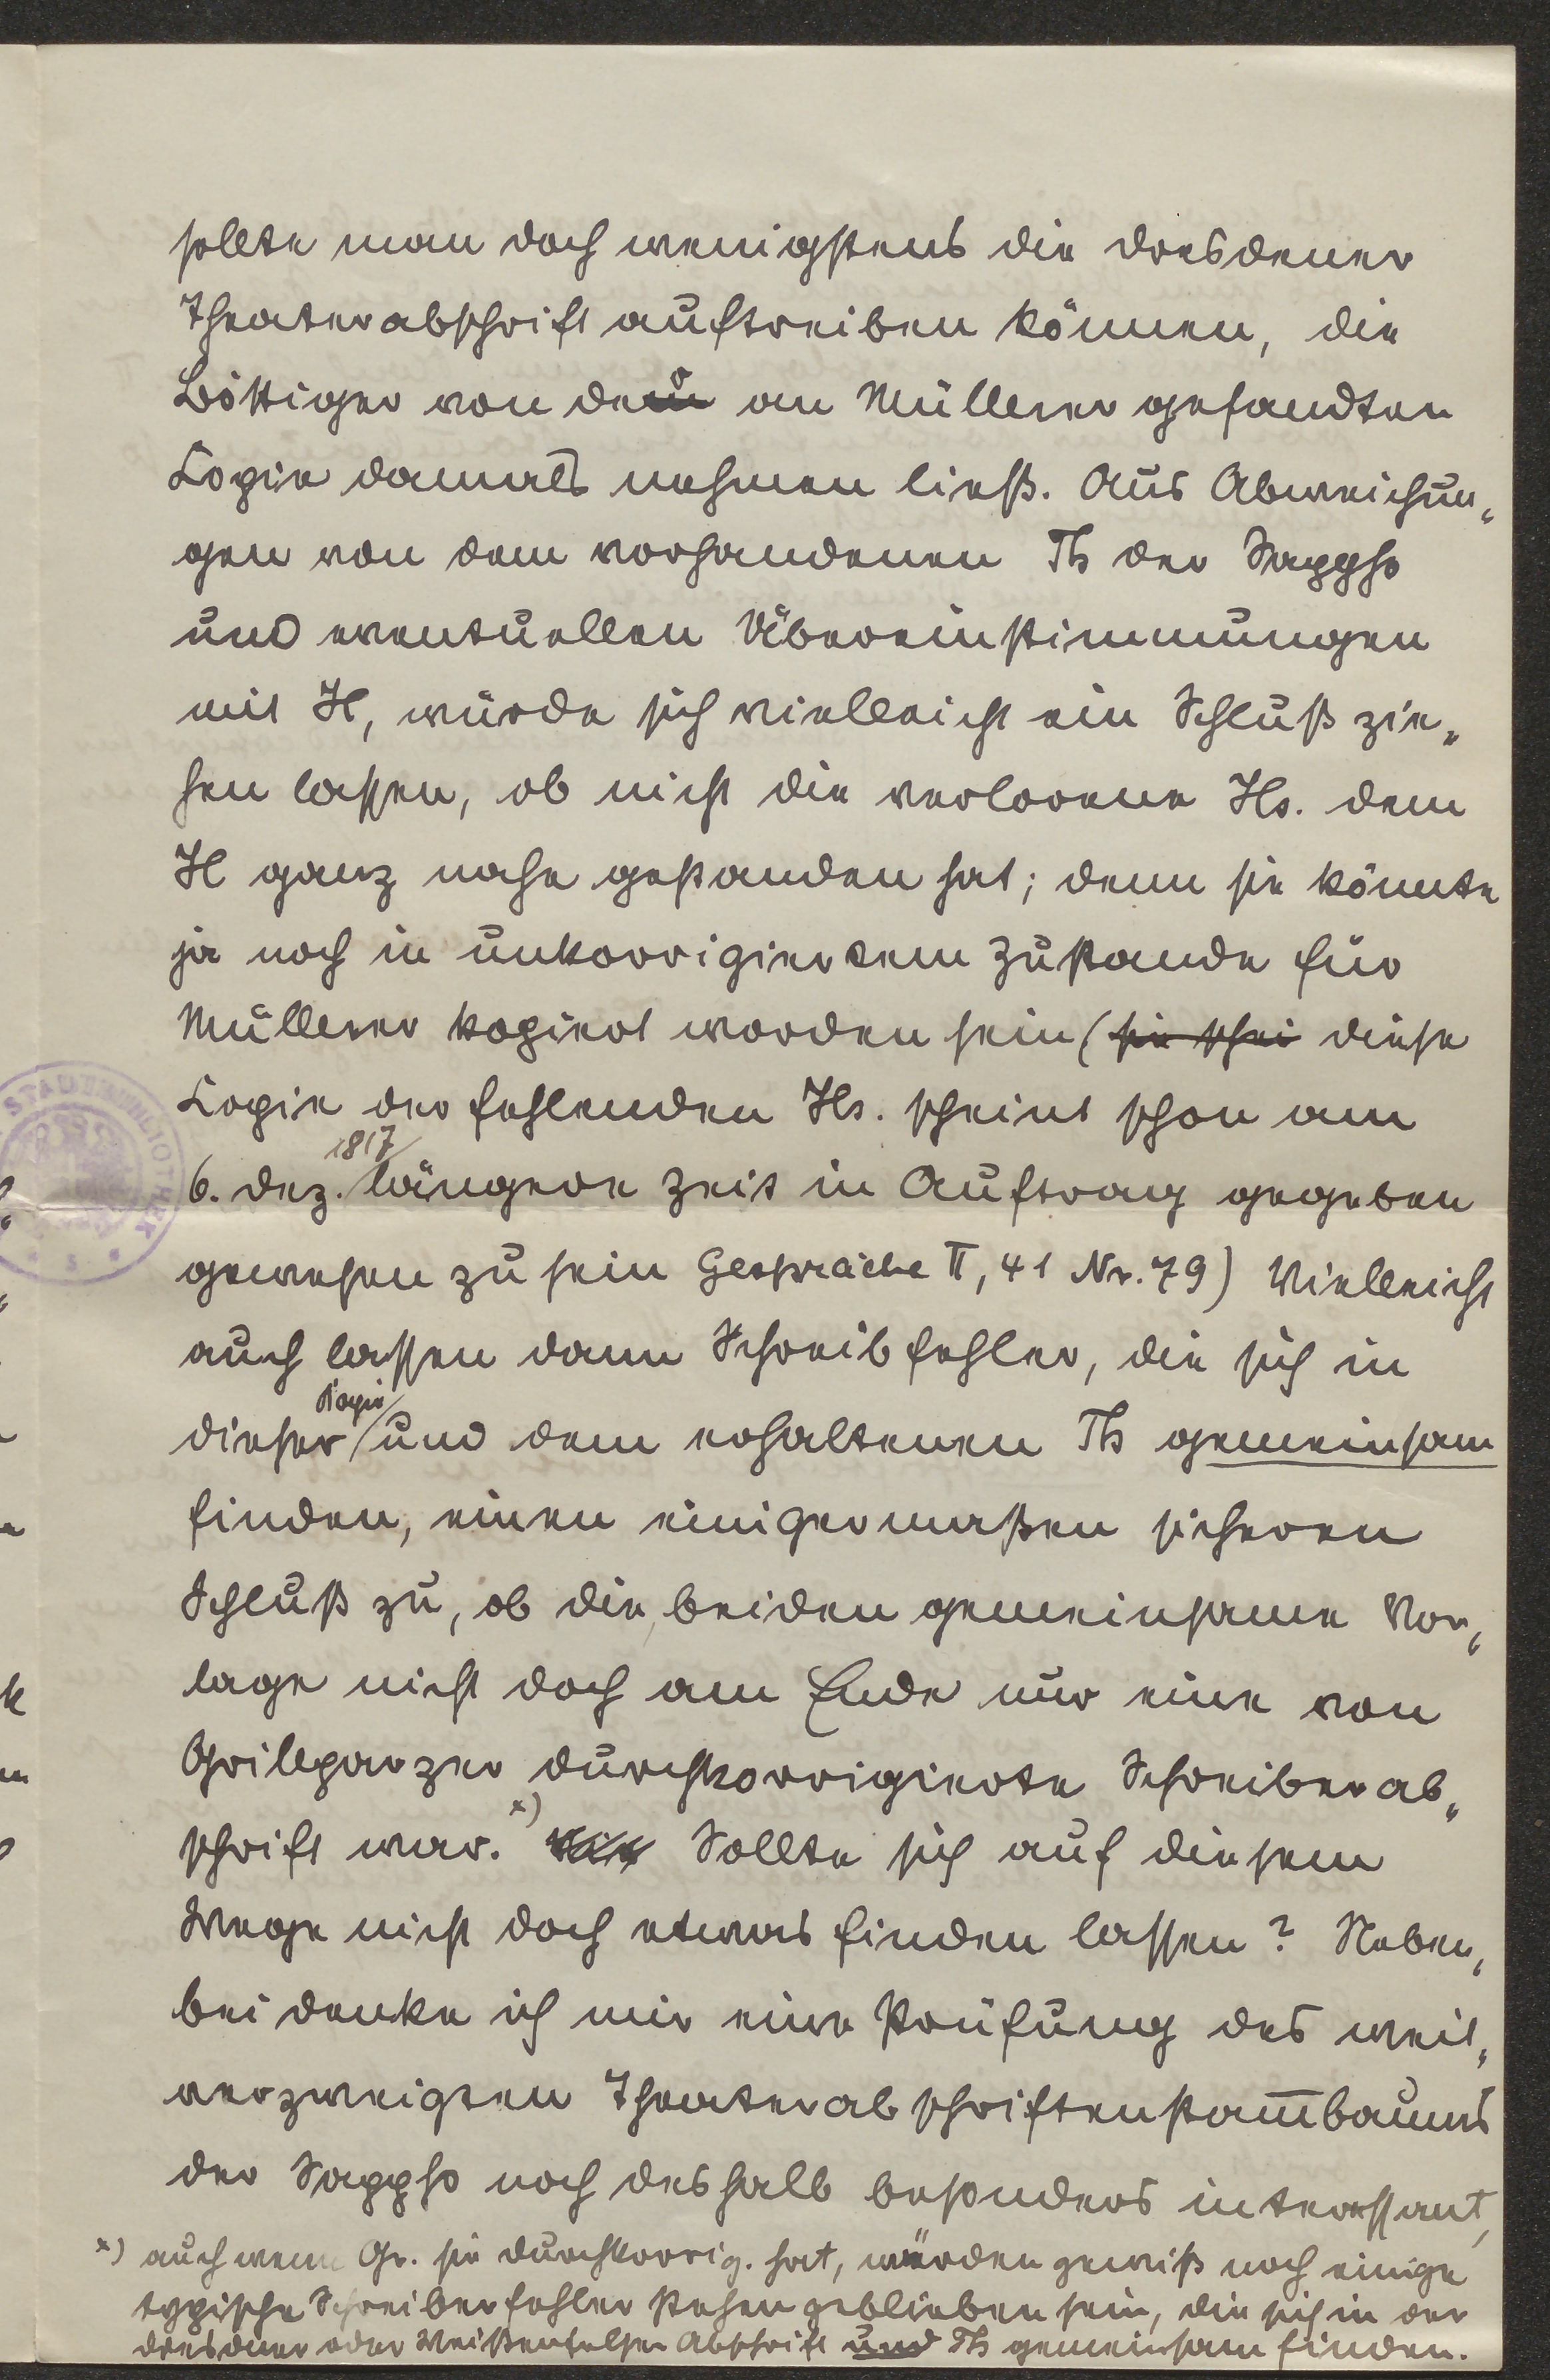 sollte man doch wenigstens die Dresdener
Theaterabschrift auftreiben können, die
Böttiger von der an Müllner gesandten
Kopie damals nehmen ließ. Aus Abweichun„
gen von dem vorhandenen Th der Sappho
und eventuellen Übereinstimmungen
mit H, würde sich vielleicht ein Schluß zie„
hen lassen, ob nicht die verlorene Hs. dem
H ganz nahe gestanden hat; denn sie könnte
ja noch in unkorrigiertem Zustande für
Müllner kopiert worden sein (sie schei diese
Kopie der fehlenden Hs. scheint schon am
6. Dez. 1817 längere Zeit in Auftrag gegeben
gewesen zu sein Gespräche II, 41 Nr. 79) Vielleicht
auch lassen dann Schreibfehler, die sich in
dieser Kopie und dem erhaltenen Th gemeinsam
finden, einen einigermaßen sicheren
Schluß zu, ob die beiden gemeinsame Vor„
lage nicht doch am Ende nur eine von
Grillparzer durchkorrigierte Schreiberab„
schrift war. x) Sollte sich auf diesem
Wege nicht doch etwas finden lassen? Neben„
bei denke ich mir eine Prüfung des weit„
verzweigten Theaterabschriftenstam̅baums
der Sappho noch deshalb besonders interessant,
x) auch wenn Gr. sie durchkorrig. hat, würden gewiß noch einige
typische Schreiberfehler stehen geblieben sein, die sich in der
Dresdner oder Weißenfelser Abschrift und Th gemeinsam finden.
STADTBIBLIOTHEK